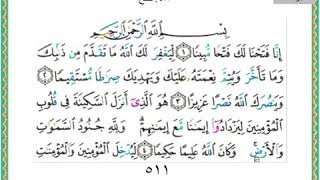 بِسْمِ اللَّهِ الرَّحْمَٰنِ الرَّحِيمِ
إِنَّا فَتَحْنَا لَكَ فَتْحًا مُّبِينًا ١ لِّيَغْفِرَ لَكَ اللَّهُ مَا تَقَدَّمَ مِن ذَنۢبِكَ
وَمَا تَأَخَّرَ وَيُتِمَّ نِعْمَتَهُۥ عَلَيْكَ وَيَهْدِيَكَ صِرَٰطًا مُّسْتَقِيمًا ٢
وَيَنصُرَكَ اللَّهُ نَصْرًا عَزِيزًا ٣ هُوَ الَّذِىٓ أَنزَلَ السَّكِينَةَ فِى قُلُوبِ
الْمُؤْمِنِينَ لِيَزْدَادُوٓا۟ إِيمَٰنًا مَّعَ إِيمَٰنِهِمْ ۗ وَلِلَّهِ جُنُودُ السَّمَٰوَٰتِ
وَالْأَرْضِ ۚ وَكَانَ اللَّهُ عَلِيمًا حَكِيمًا ٤ لِّيُدْخِلَ الْمُؤْمِنِينَ وَالْمُؤْمِنَٰتِ
٥١١